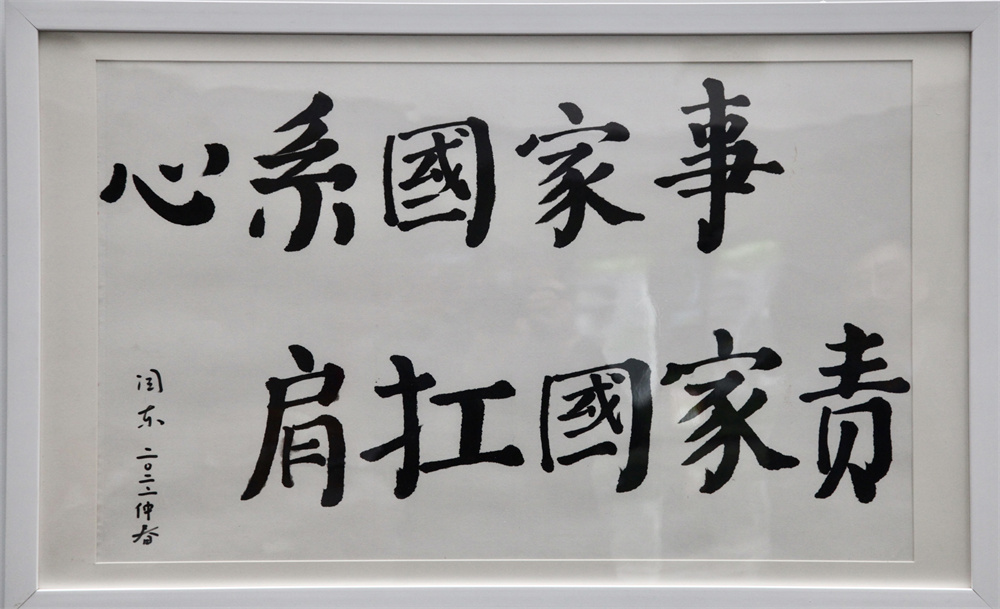 心系國家事
肩扛國家责
闫东 二〇二二仲春